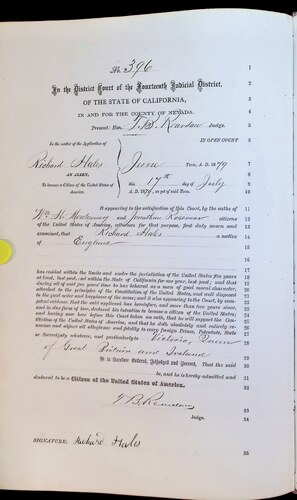 No. 396
In the District Court of the Fourteenth Judicial District,
OF THE STATE OF CALIFORNIA,
IN AND FOR THE COUNTY OF NEVADA.
Present: Hon. T. B. Reardan Judge.
In the matter of the Application of
Richard Hales
AN ALIEN,
To become a Citizen of the United States of America.
IN OPEN COURT
June Term, A. D. 1879
this 17th day of July
A. D. 1879, as yet of said Term.
It appearing to the satisfaction of this Court, by the oaths of
Wm. H. and Jonathan citizens
of the United States of America, witnesses for that purpose, first duly sworn and
examined, that Richard Hales a native
of England
has resided within the limits and under the jurisdiction of the United States five years
at least, last past, and within the State of California for one year, last past; and that
during all of said five years' time he has behaved as a man of good moral character,
attached to the principles of the Constitution of the United States, and well disposed
to the good order and happiness of the same; and it also appearing to the Court, by com-
petent evidence, that the said applicant has heretofore, and more than two years since,
and in due form of law, declared his intention to become a citizen of the United States,
and having now here before this Court taken an oath, that he will support the Con-
stitution of the United States of America, and that he doth absolutely and entirely re-
nounce and abjure all allegiance and fidelity to every foreign Prince, Potentate, State
or Sovereignty whatever, and particularly to Victoria, Queen
of Great Britain and Ireland
It is therefore Ordered, Adjudged and Decreed, That the said
be, and he is hereby admitted and
declared to be a Citizen of the United States of America.
T B Reardan
Judge.
SIGNATURE: Richard Hales
1
2
3
4
5
6
7
8
9
10
11
12
13
14
15
16